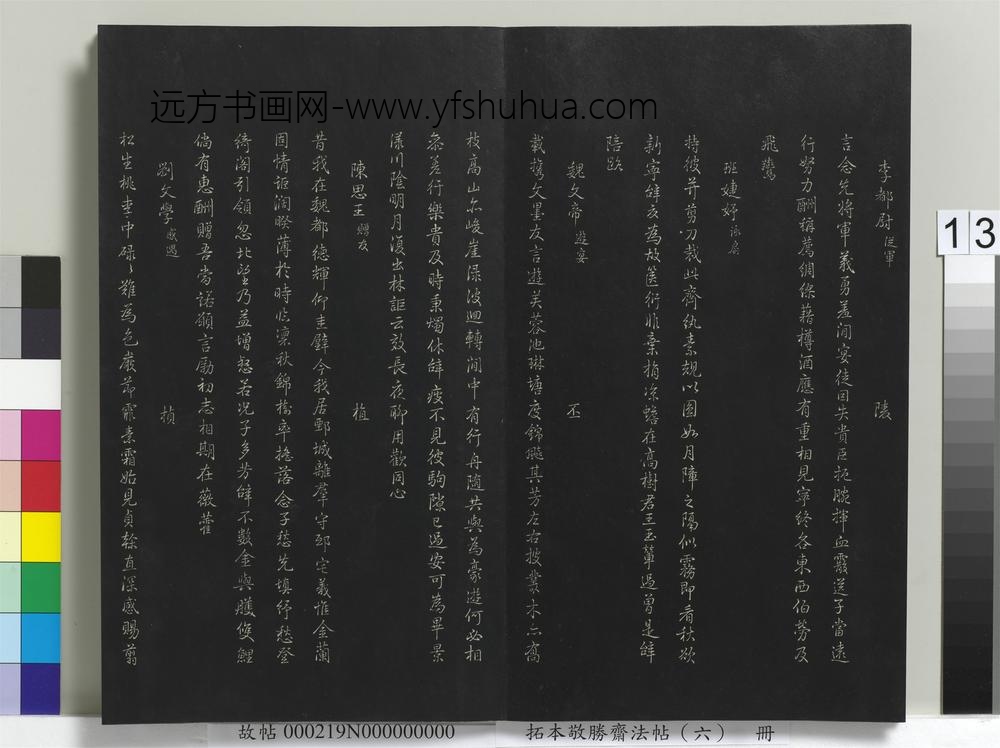 远方书画网-www.yfshuhua.com
13
李都尉 從軍 陵
言念先將軍義勇蓋閒宴徒因失貴臣扼腕揮血霰送子當遠
行努力酬稱薦綢繆藉樽酒應有重相見寧終各東西伯勞及
飛鷰
班婕妤 詠扇
持彼并剪刀裁此齊紈素規以圓如月障之隔似霧即看秋欲
新寧辭衣為故篋衍非棄捐涼蟾在高樹君王玉輦過曾是辭
陪路
魏文帝 遊宴 丕
載攜文墨友言遊芙蓉池琳塘度錦颷其芳左右披叢木亦喬
枝高山尔峻崖深波迴轉閒中有行舟隨共與為豪遊何必相
參差行樂貴及時秉燭休辭疲不見彼駒隙已過安可為畢景
漾川陰明月復出林詎云效長夜聊用歡同心
陳思王 贈友 植
昔我在魏都德輝仰圭璧今我居鄄城離羣守邳宅義惟金蘭
固情詎濶暌薄於時悲凜秋錦柃卒捲落念子愁先填紓愁登
綺閣引領忽北望乃益增怒若况子多芳辭不數金與雘倏鯉
倘有惠酬贈吾當諾願言勵初志相期在薇藿
劉文學 感遇 楨
松生桃李中碌々難為色嚴節霏素霜始見貞榦直深感賜翦
故帖 000219N000000000
拓本敬勝齋法帖（六） 冊